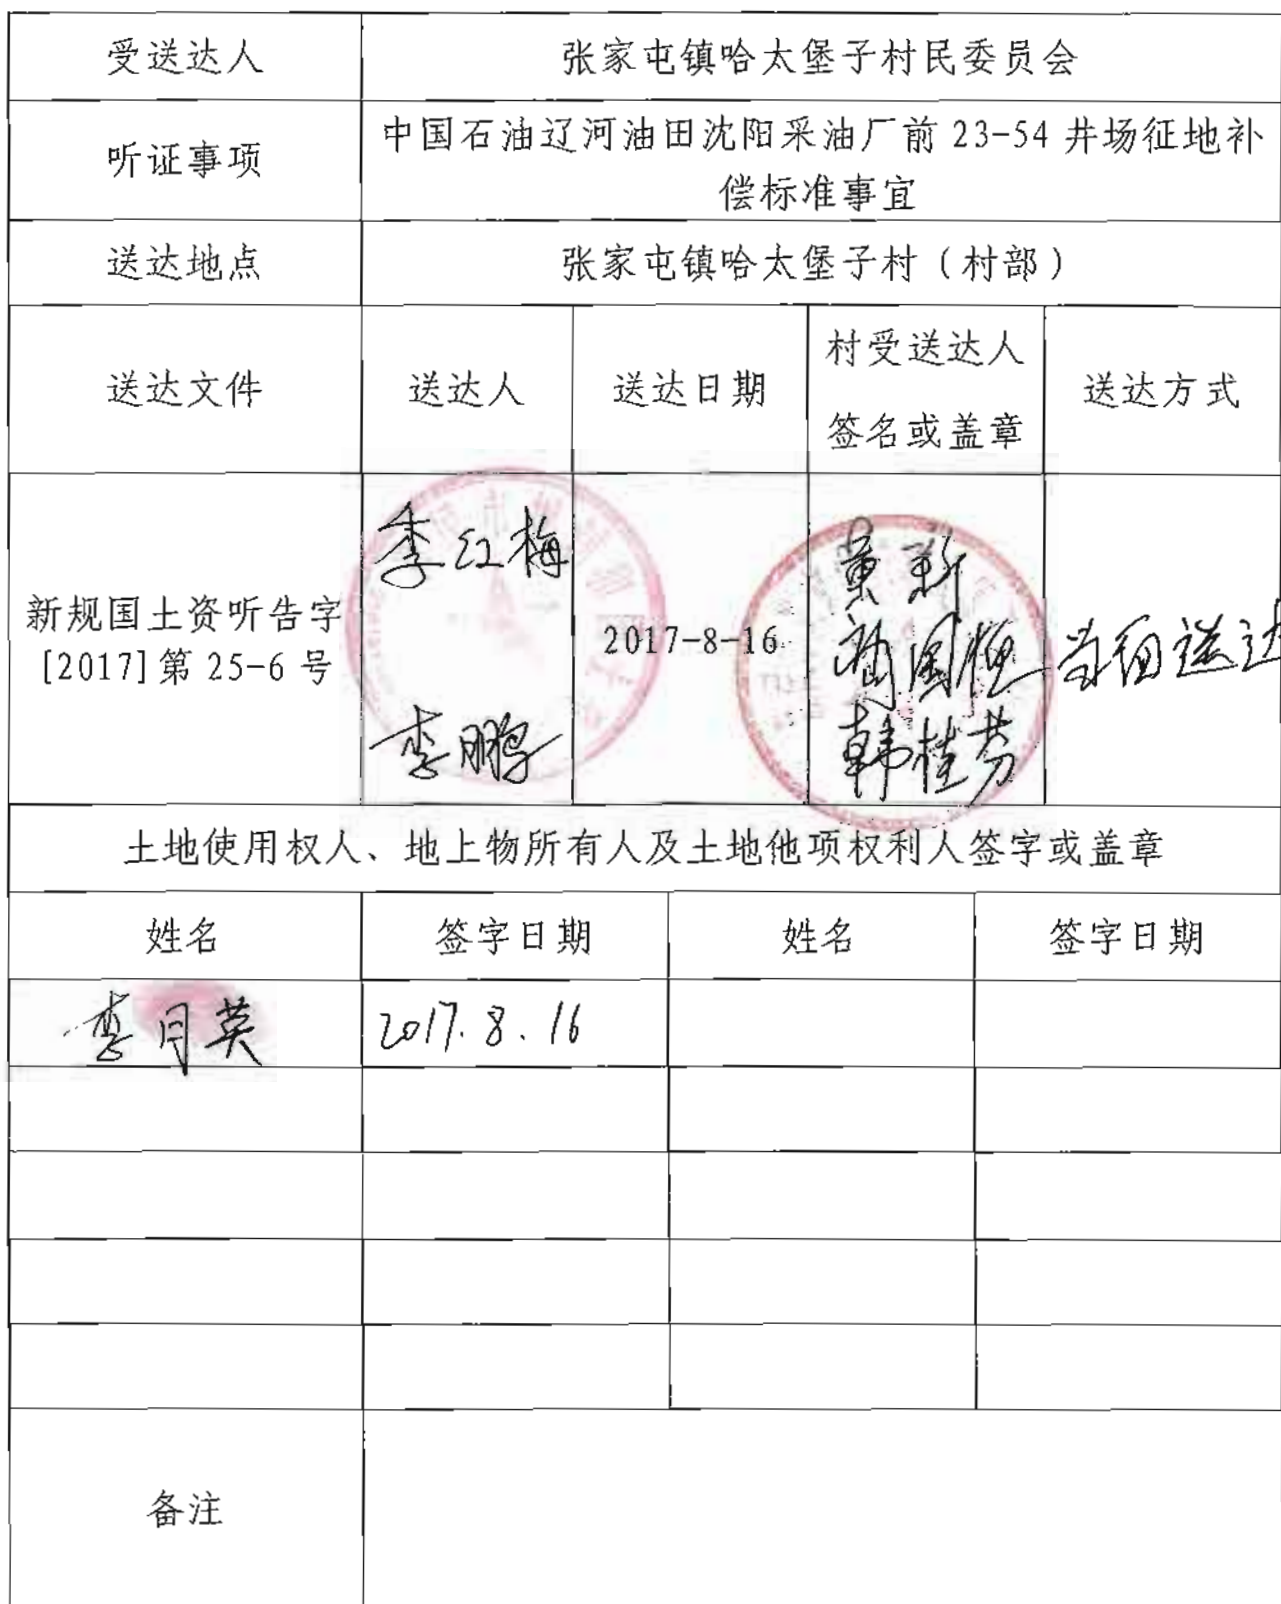 受送达人
张家屯镇哈太堡子村民委员会
听证事项
中国石油辽河油田沈阳采油厂前 23-54 井场征地补
偿标准事宜
送达地点
张家屯镇哈太堡子村（村部）
送达文件
送达人
送达日期
村受送达人
签名或盖章
送达方式
新规国土资听告字
[2017]第 25-6 号
李红梅
李鹏
2017-8-16
黄新
国恒
韩桂芳
当面送达
土地使用权人、地上物所有人及土地他项权利人签字或盖章
姓名
签字日期
姓名
签字日期
李月英
2017.8.16
备注